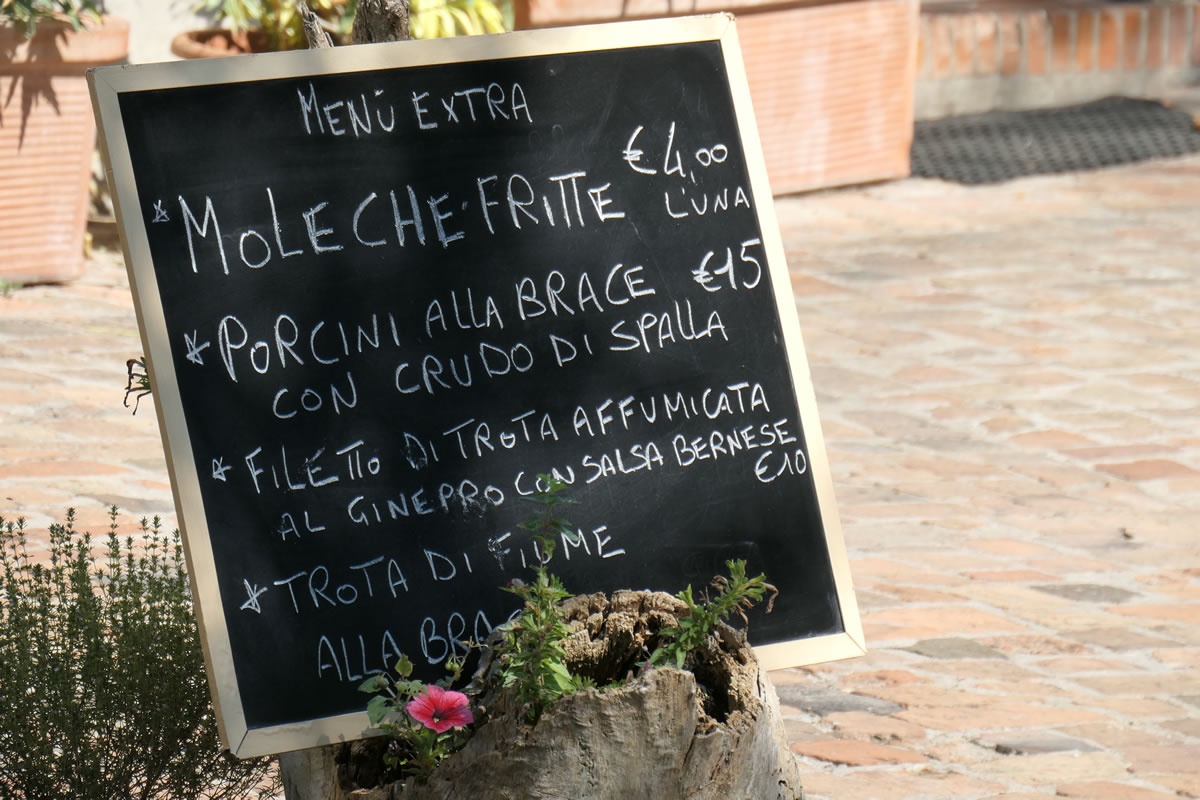 MENÙ EXTRA
* MOLECHE FRITTE €4,00
L'UNA
* PORCINI ALLA BRACE €15
CON CRUDO DI SPALLA
* FILETTO DI TROTA AFFUMICATA
AL GINEPRO CON SALSA BERNESE
€10
* TROTA DI FIUME
ALLA